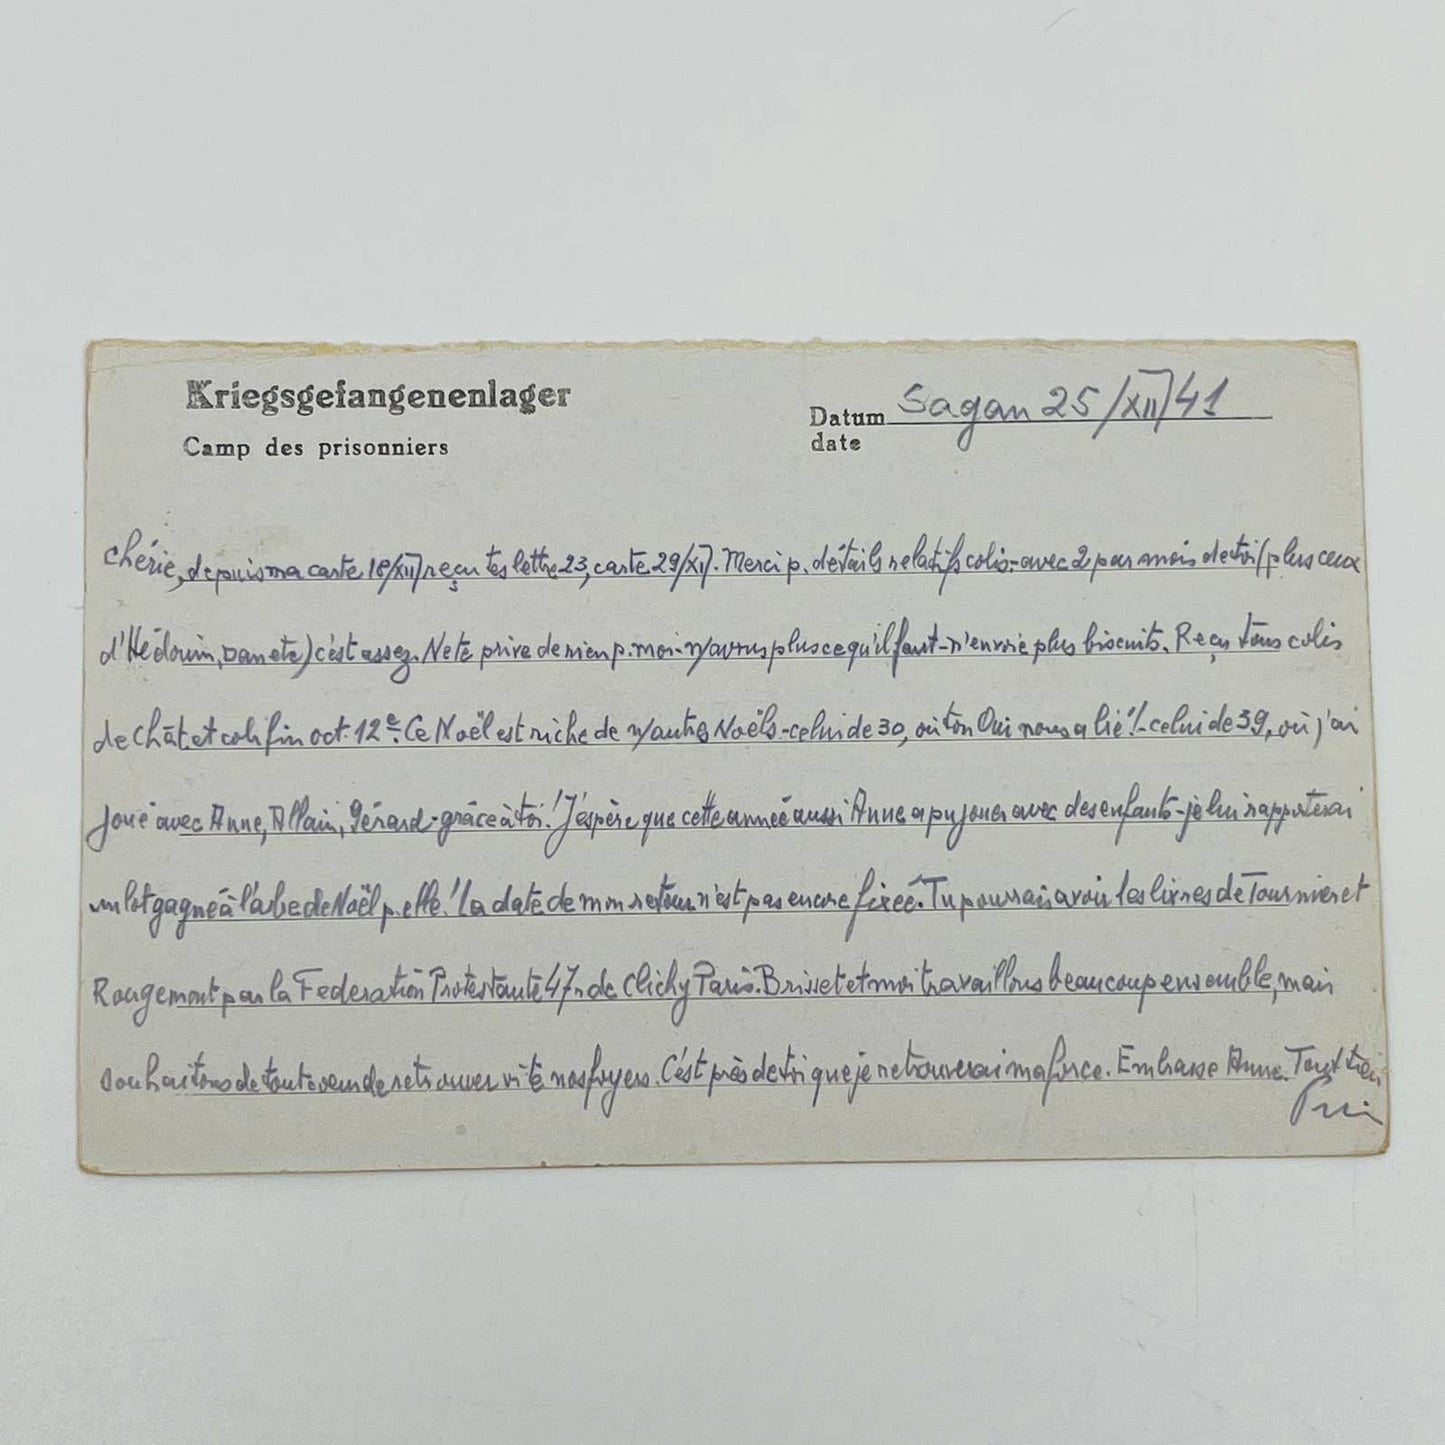 Kriegsgefangenenlager
Camp des prisonniers
Datum Sagan 25/XII/41
date
Chérie, depuis ma carte 18/XII reçu tes lettre 23, carte 29/XI. Merci p. détails relatifs colis - avec 2 par mois de toi (plus ceux
d'Hédouin, Dan etc) c'est assez. Ne te prive de rien p. moi - n/avons plus ce qu'il faut - n'envoie plus biscuits. Reçu tous colis
de Chât. et colis fin oct. 12e. Ce Noël est riche de n/autres Noëls - celui de 30, où ton Oui nous a lié! - celui de 39, où j'ai
joué avec Anne, Allain, Gérard - grâce à toi! J'espère que cette année aussi Anne a pu jouer avec des enfants - je lui rapporterai
un lot gagné à l'arbe de Noël p. elle! La date de mon retour n'est pas encore fixée. Tu pourrais avoir les livres de Tournier et
Rougemont par la Federation Protestante 47 r. de Clichy Paris. Brisset et moi travaillons beaucoup ensemble, mais
souhaitons de tout coeur de retrouver vite nos foyers. C'est près de toi que je retrouverai ma force. Embrasse Anne. Tout tien